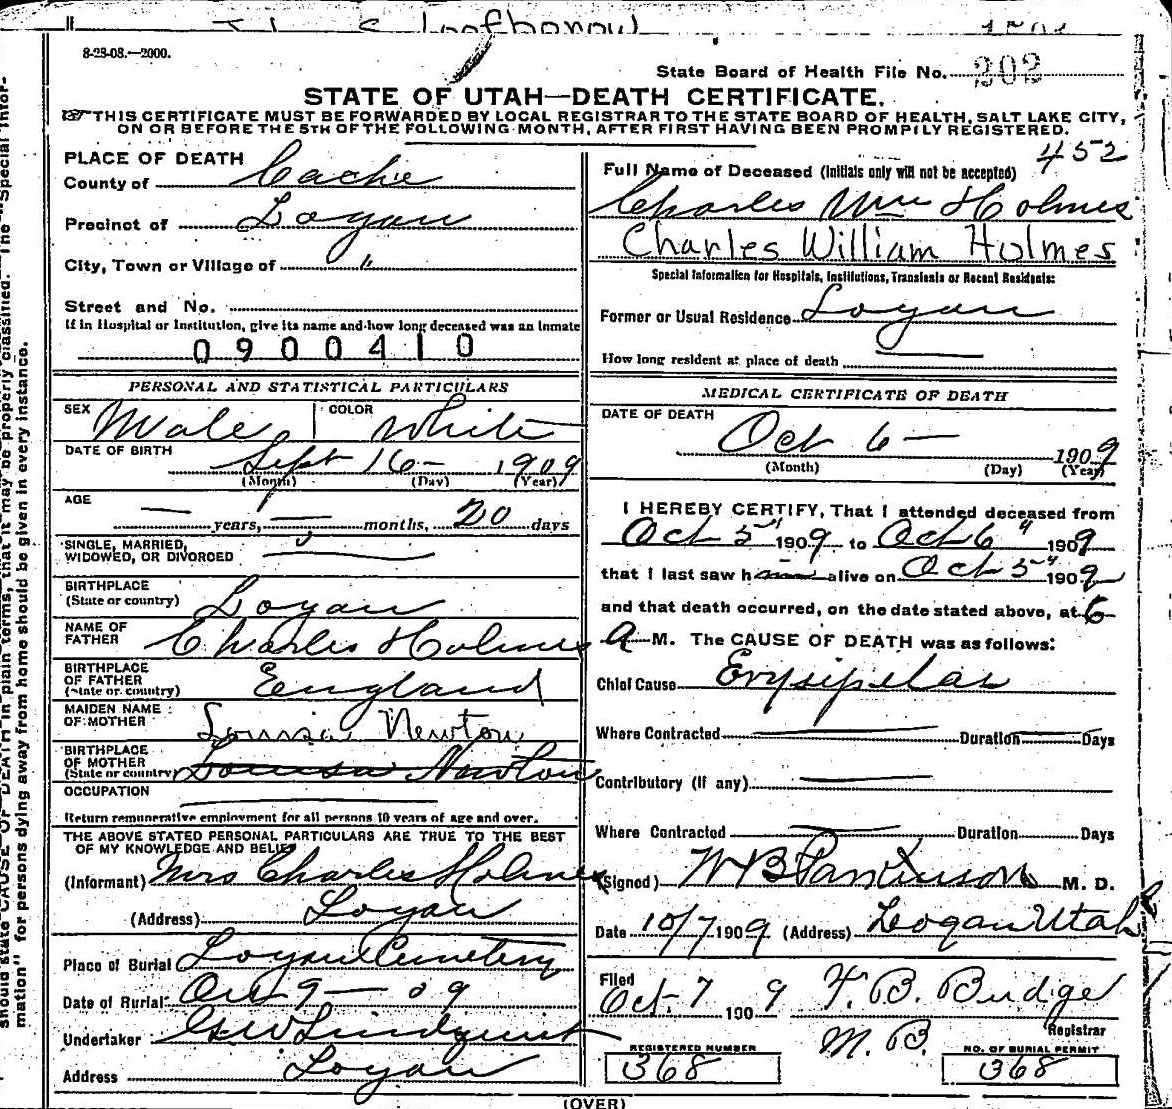 8-25-08.—2000.
State Board of Health File No. 202
STATE OF UTAH—DEATH CERTIFICATE.
THIS CERTIFICATE MUST BE FORWARDED BY LOCAL REGISTRAR TO THE STATE BOARD OF HEALTH, SALT LAKE CITY,
ON OR BEFORE THE 5TH OF THE FOLLOWING MONTH, AFTER FIRST HAVING BEEN PROMPTLY REGISTERED.
PLACE OF DEATH
County of Cache
Precinct of Logan
City, Town or Village of "
Street and No.
If in Hospital or Institution, give its name and how long deceased was an inmate
0900410
PERSONAL AND STATISTICAL PARTICULARS
SEX Male COLOR White
DATE OF BIRTH Sept 16 — 1909
(Month) (Day) (Year)
AGE — years, — months, 20 days
SINGLE, MARRIED,
WIDOWED, OR DIVORCED
BIRTHPLACE
(State or country) Logan
NAME OF
FATHER Charles Holmes
BIRTHPLACE
OF FATHER
(State or country) England
MAIDEN NAME
OF MOTHER Louisa Newton
BIRTHPLACE
OF MOTHER
(State or country) Louisa Newton
OCCUPATION
Return remunerative employment for all persons 10 years of age and over.
THE ABOVE STATED PERSONAL PARTICULARS ARE TRUE TO THE BEST
OF MY KNOWLEDGE AND BELIEF
(Informant) Mrs Charles Holmes
(Address) Logan
Place of Burial Logan Cemetery
Date of Burial Oct 9 — 09
Undertaker G W Lindquist
Address Logan
452
Full Name of Deceased (Initials only will not be accepted)
Charles Wm Holmes
Charles William Holmes
Special Information for Hospitals, Institutions, Transients or Recent Residents:
Former or Usual Residence Logan
How long resident at place of death —
MEDICAL CERTIFICATE OF DEATH
DATE OF DEATH
Oct 6 — 1909
(Month) (Day) (Year)
I HEREBY CERTIFY, That I attended deceased from
Oct 5" 1909 to Oct 6" 1909
that I last saw h alive on Oct 5" 1909
and that death occurred, on the date stated above, at 6
A M. The CAUSE OF DEATH was as follows:
Chief Cause Erysipelas
Where Contracted — Duration — Days
Contributory (If any) —
Where Contracted — Duration Days
(Signed) W B Parkinson M. D.
Date 10/7 1909 (Address) Logan Utah
Filed
Oct 7 1909 F. B. Budge
Registrar
M. B.
REGISTERED NUMBER
368
NO. OF BURIAL PERMIT
368
(OVER)
should state CAUSE OF DEATH in plain terms, that it may be properly classified. The "Special Infor-
mation" for persons dying away from home should be given in every instance.